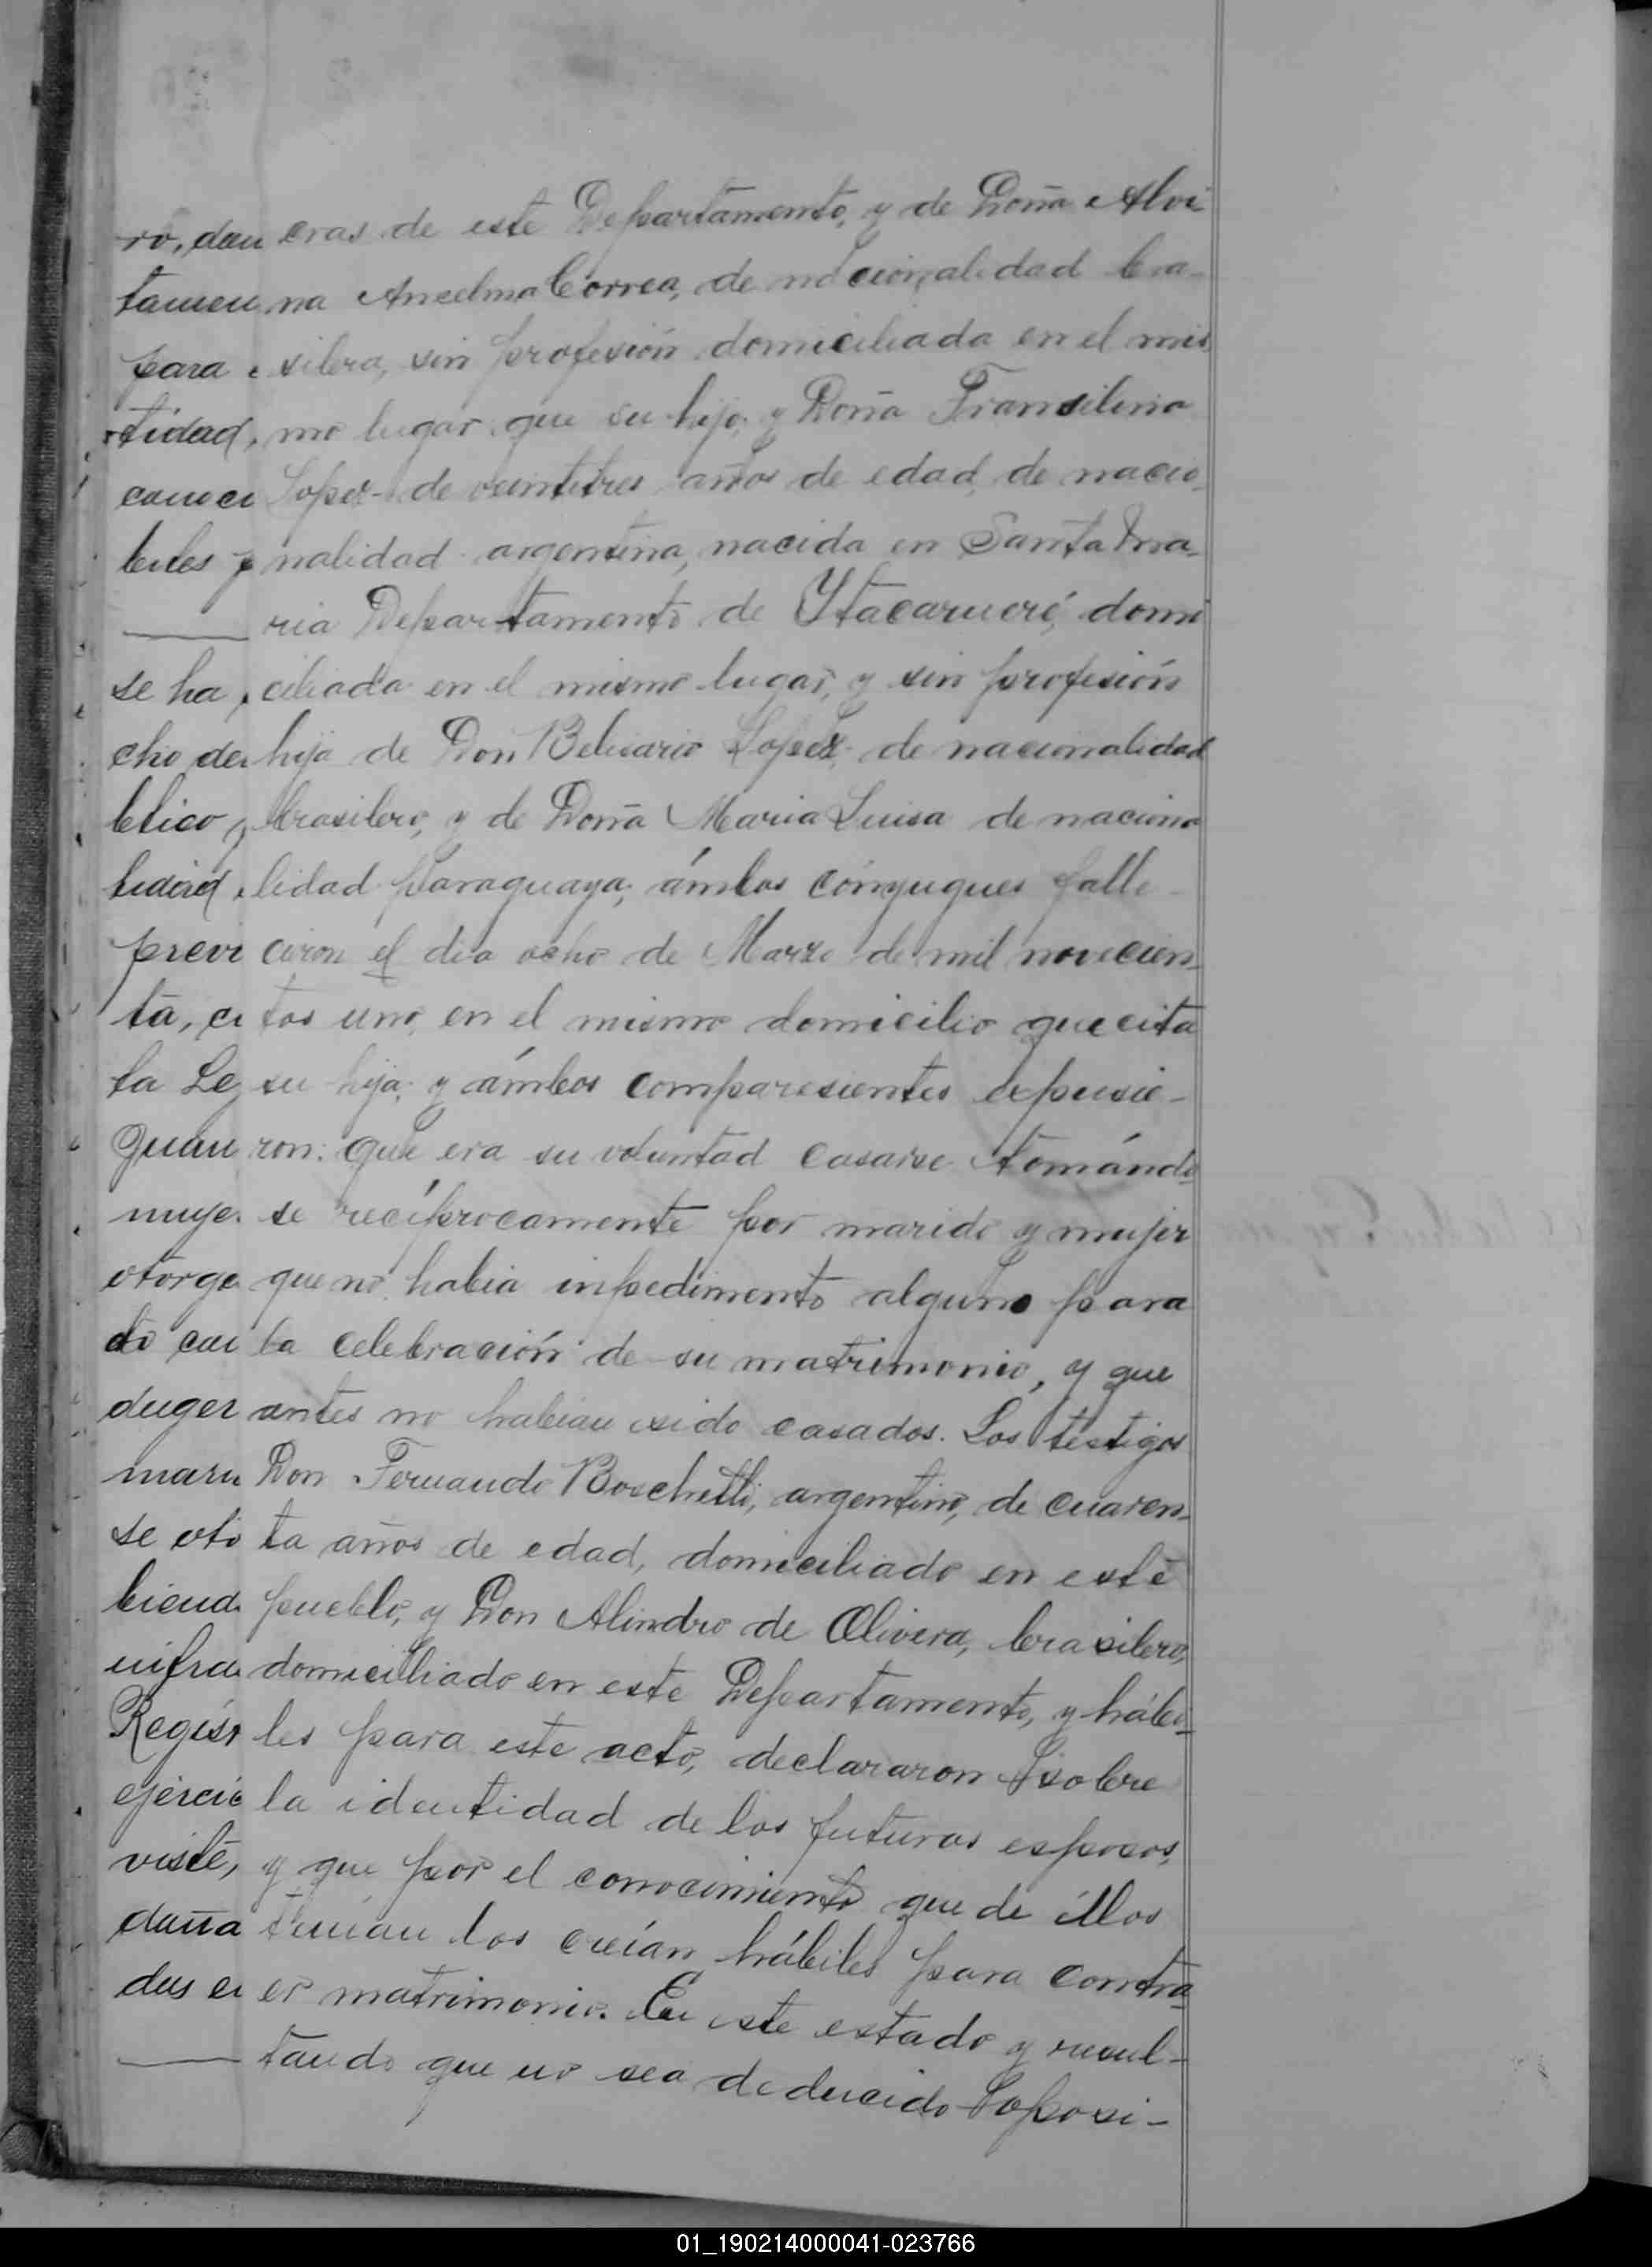 ro, dan cras de este Departamento, y de Doña Alvi
tamen na Anselma Correa, de nacionalidad bra-
para silera, sin profesión domiciliada en el mis
tidad, mo lugar que su hijo; y Doña Transilina
conoci Lopez de veintitres años de edad, de nacio-
biles y nalidad argentina, nacida en Santa Ma-
ria Departamento de Ytacarueré, domi
se ha ciliada en el mismo lugar, y sin profesión
cho de hija de Don Belisario Lopez, de nacionalidad
blico y brasilero, y de Doña Maria Luisa de naciona
lidad paraguaya, ámbos cónyugues falle-
previ ciron el dia ocho de Marzo de mil novecien-
ta, ci tos uno, en el mismo domicilio que cita
la Le su hija; y ámbos comparesientes expusie-
Juan ron: que era su voluntad casarse tomándo
muje se recíprocamente por marido y mujer
otorga que no habia inpedimento alguno para
do con la celebración de su matrimonio, y que
duger antes no habian sido casados. Los testigos
mari Don Fernando Boschetti, argentino, de cuaren-
se oto ta años de edad, domiciliado en este
biend pueblo, y Don Alindro de Olivera, brasilero,
infra domiciliado en este Departamento, y hábi-
Regist les para este acto, declararon sobre
ejercic la identidad de los futuros esposos,
viste, y que por el conocimiento que de éllos
daña tenian los creían hábiles para contra-
das er matrimonio. En este estado y resul-
tando que no sea deducido oposi-
01_190214000041-023766